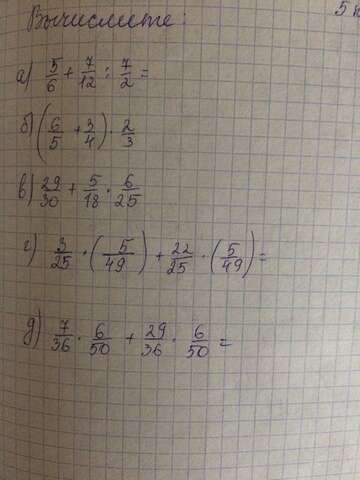 Вычислите:
а) 5/6 + 7/12 : 7/2 =
б) (6/5 + 3/4) · 2/3
в) 29/30 + 5/18 · 6/25
г) 3/25 · (5/49) + 22/25 · (5/49) =
д) 7/36 · 6/50 + 29/36 · 6/50 =